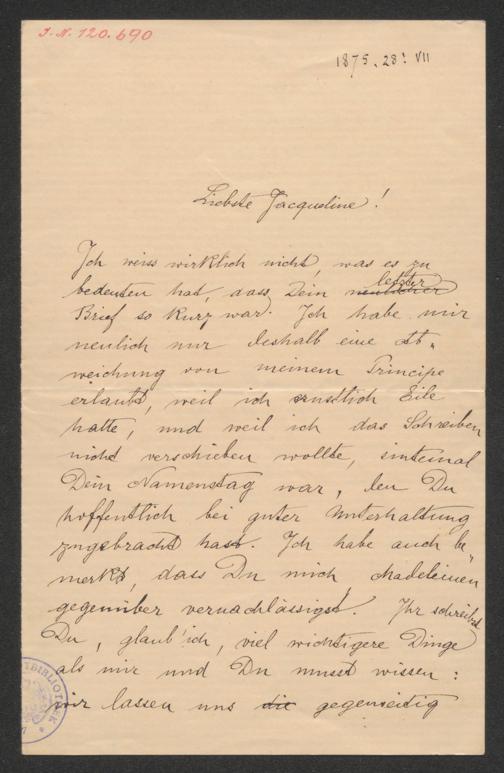 J. N. 120.690
1875. 28! VII
Liebste Jacqueline!
Ich weiss wirklich nicht, was es zu
letzter
bedeuten hat, dass Dein neulicher
Brief so kurz war. Ich habe mir
neulich nur deshalb eine Ab-
weichung von meinem Principe
erlaubt, weil ich ernstlich Eile
hatte, und weil ich das Schreiben
nicht verschieben wollte, sintemal
Dein Namenstag war, den Du
hoffentlich bei guter Unterhaltung
zugebracht hast. Ich habe auch be-
merkt, dass Du mich Madeleinen
gegenüber vernachlässigst. Ihr schreibst
Du, glaub' ich, viel wichtigere Dinge
als mir und Du musst wissen:
wir lassen uns die gegenseitig